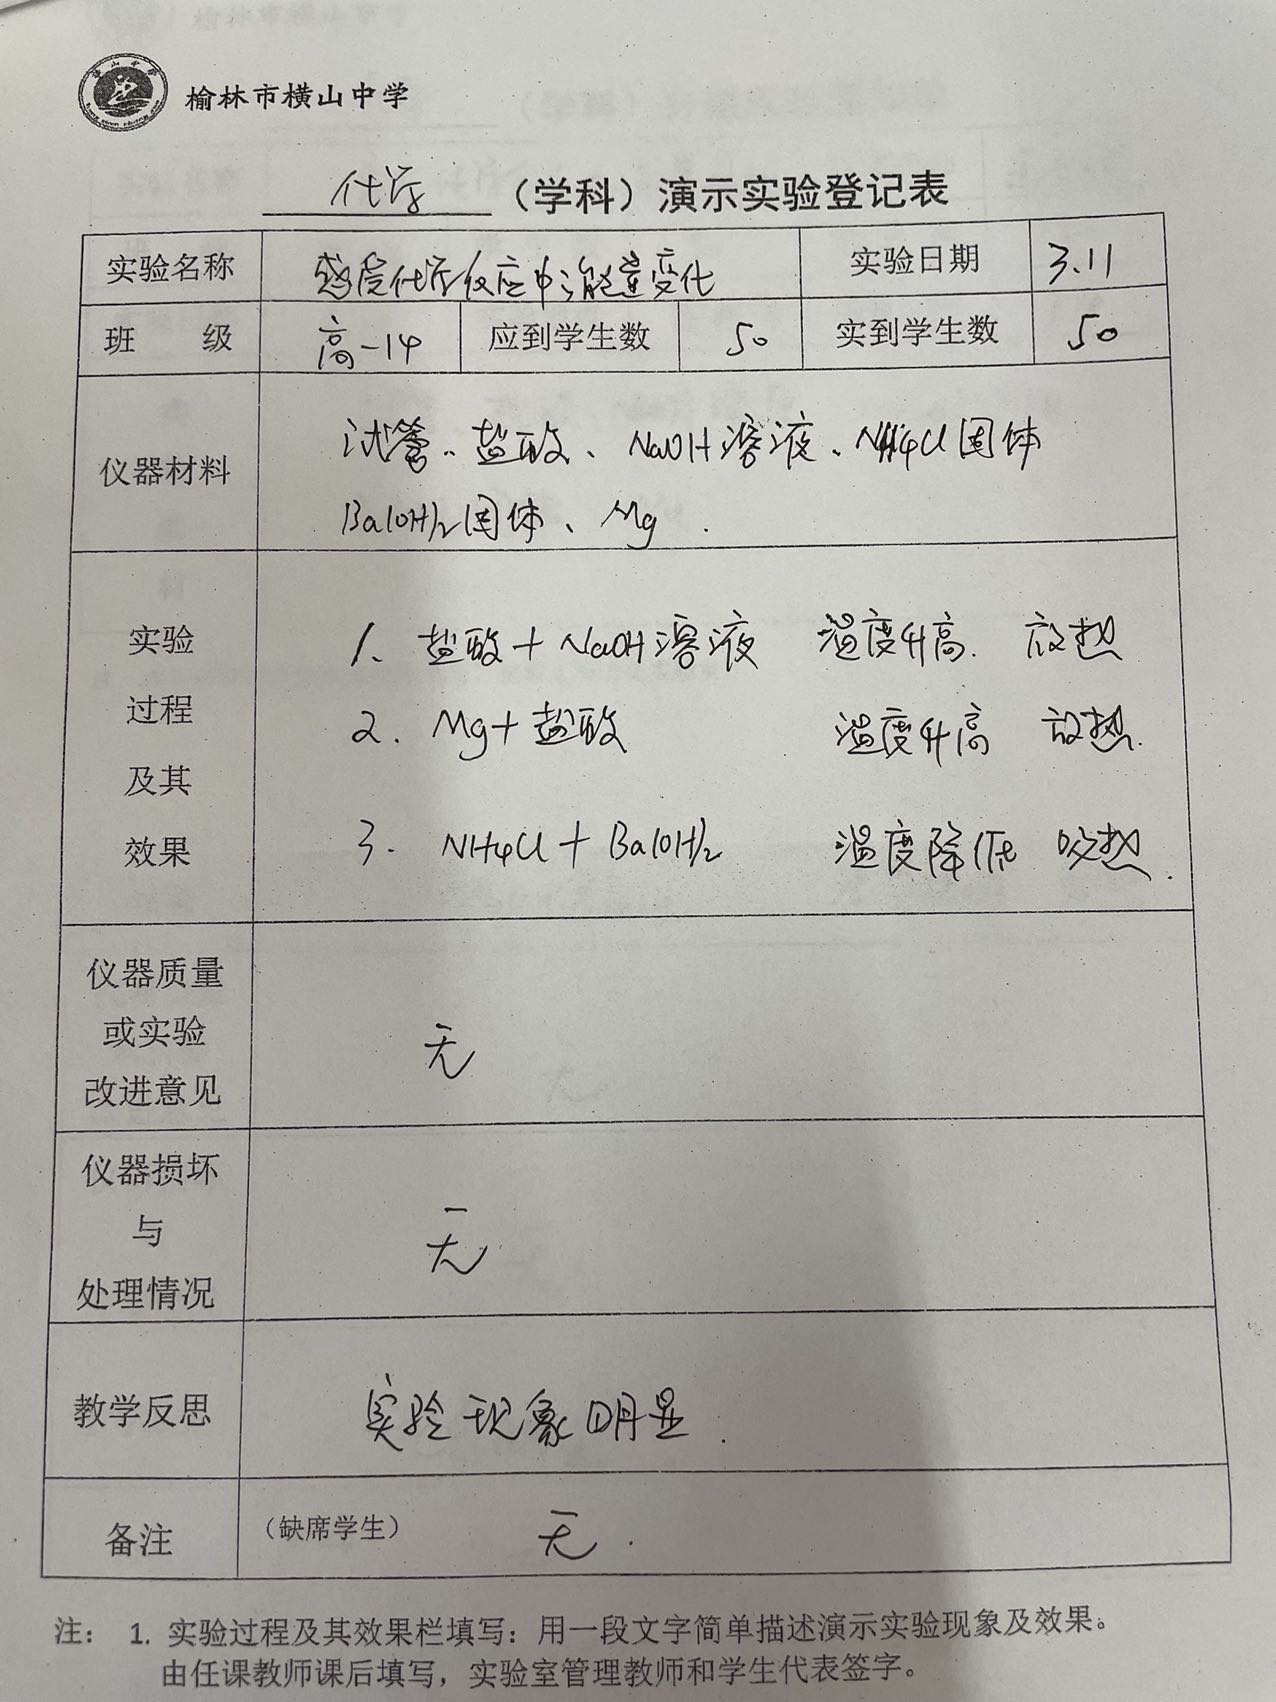 榆林市横山中学
化学（学科）演示实验登记表
实验名称 感受化学反应中能量变化 实验日期 3.11
班 级 高一14 应到学生数 50 实到学生数 50
仪器材料 试管、盐酸、NaOH溶液、NH4Cl固体
Ba(OH)2固体、Mg.
实验
过程
及其
效果
1、盐酸+NaOH溶液 温度升高. 放热
2. Mg+盐酸 温度升高 放热.
3. NH4Cl+Ba(OH)2 温度降低 吸热.
仪器质量
或实验
改进意见
无
仪器损坏
与
处理情况
无
教学反思 实验现象明显.
备注 （缺席学生） 无.
注： 1. 实验过程及其效果栏填写：用一段文字简单描述演示实验现象及效果。
由任课教师课后填写，实验室管理教师和学生代表签字。